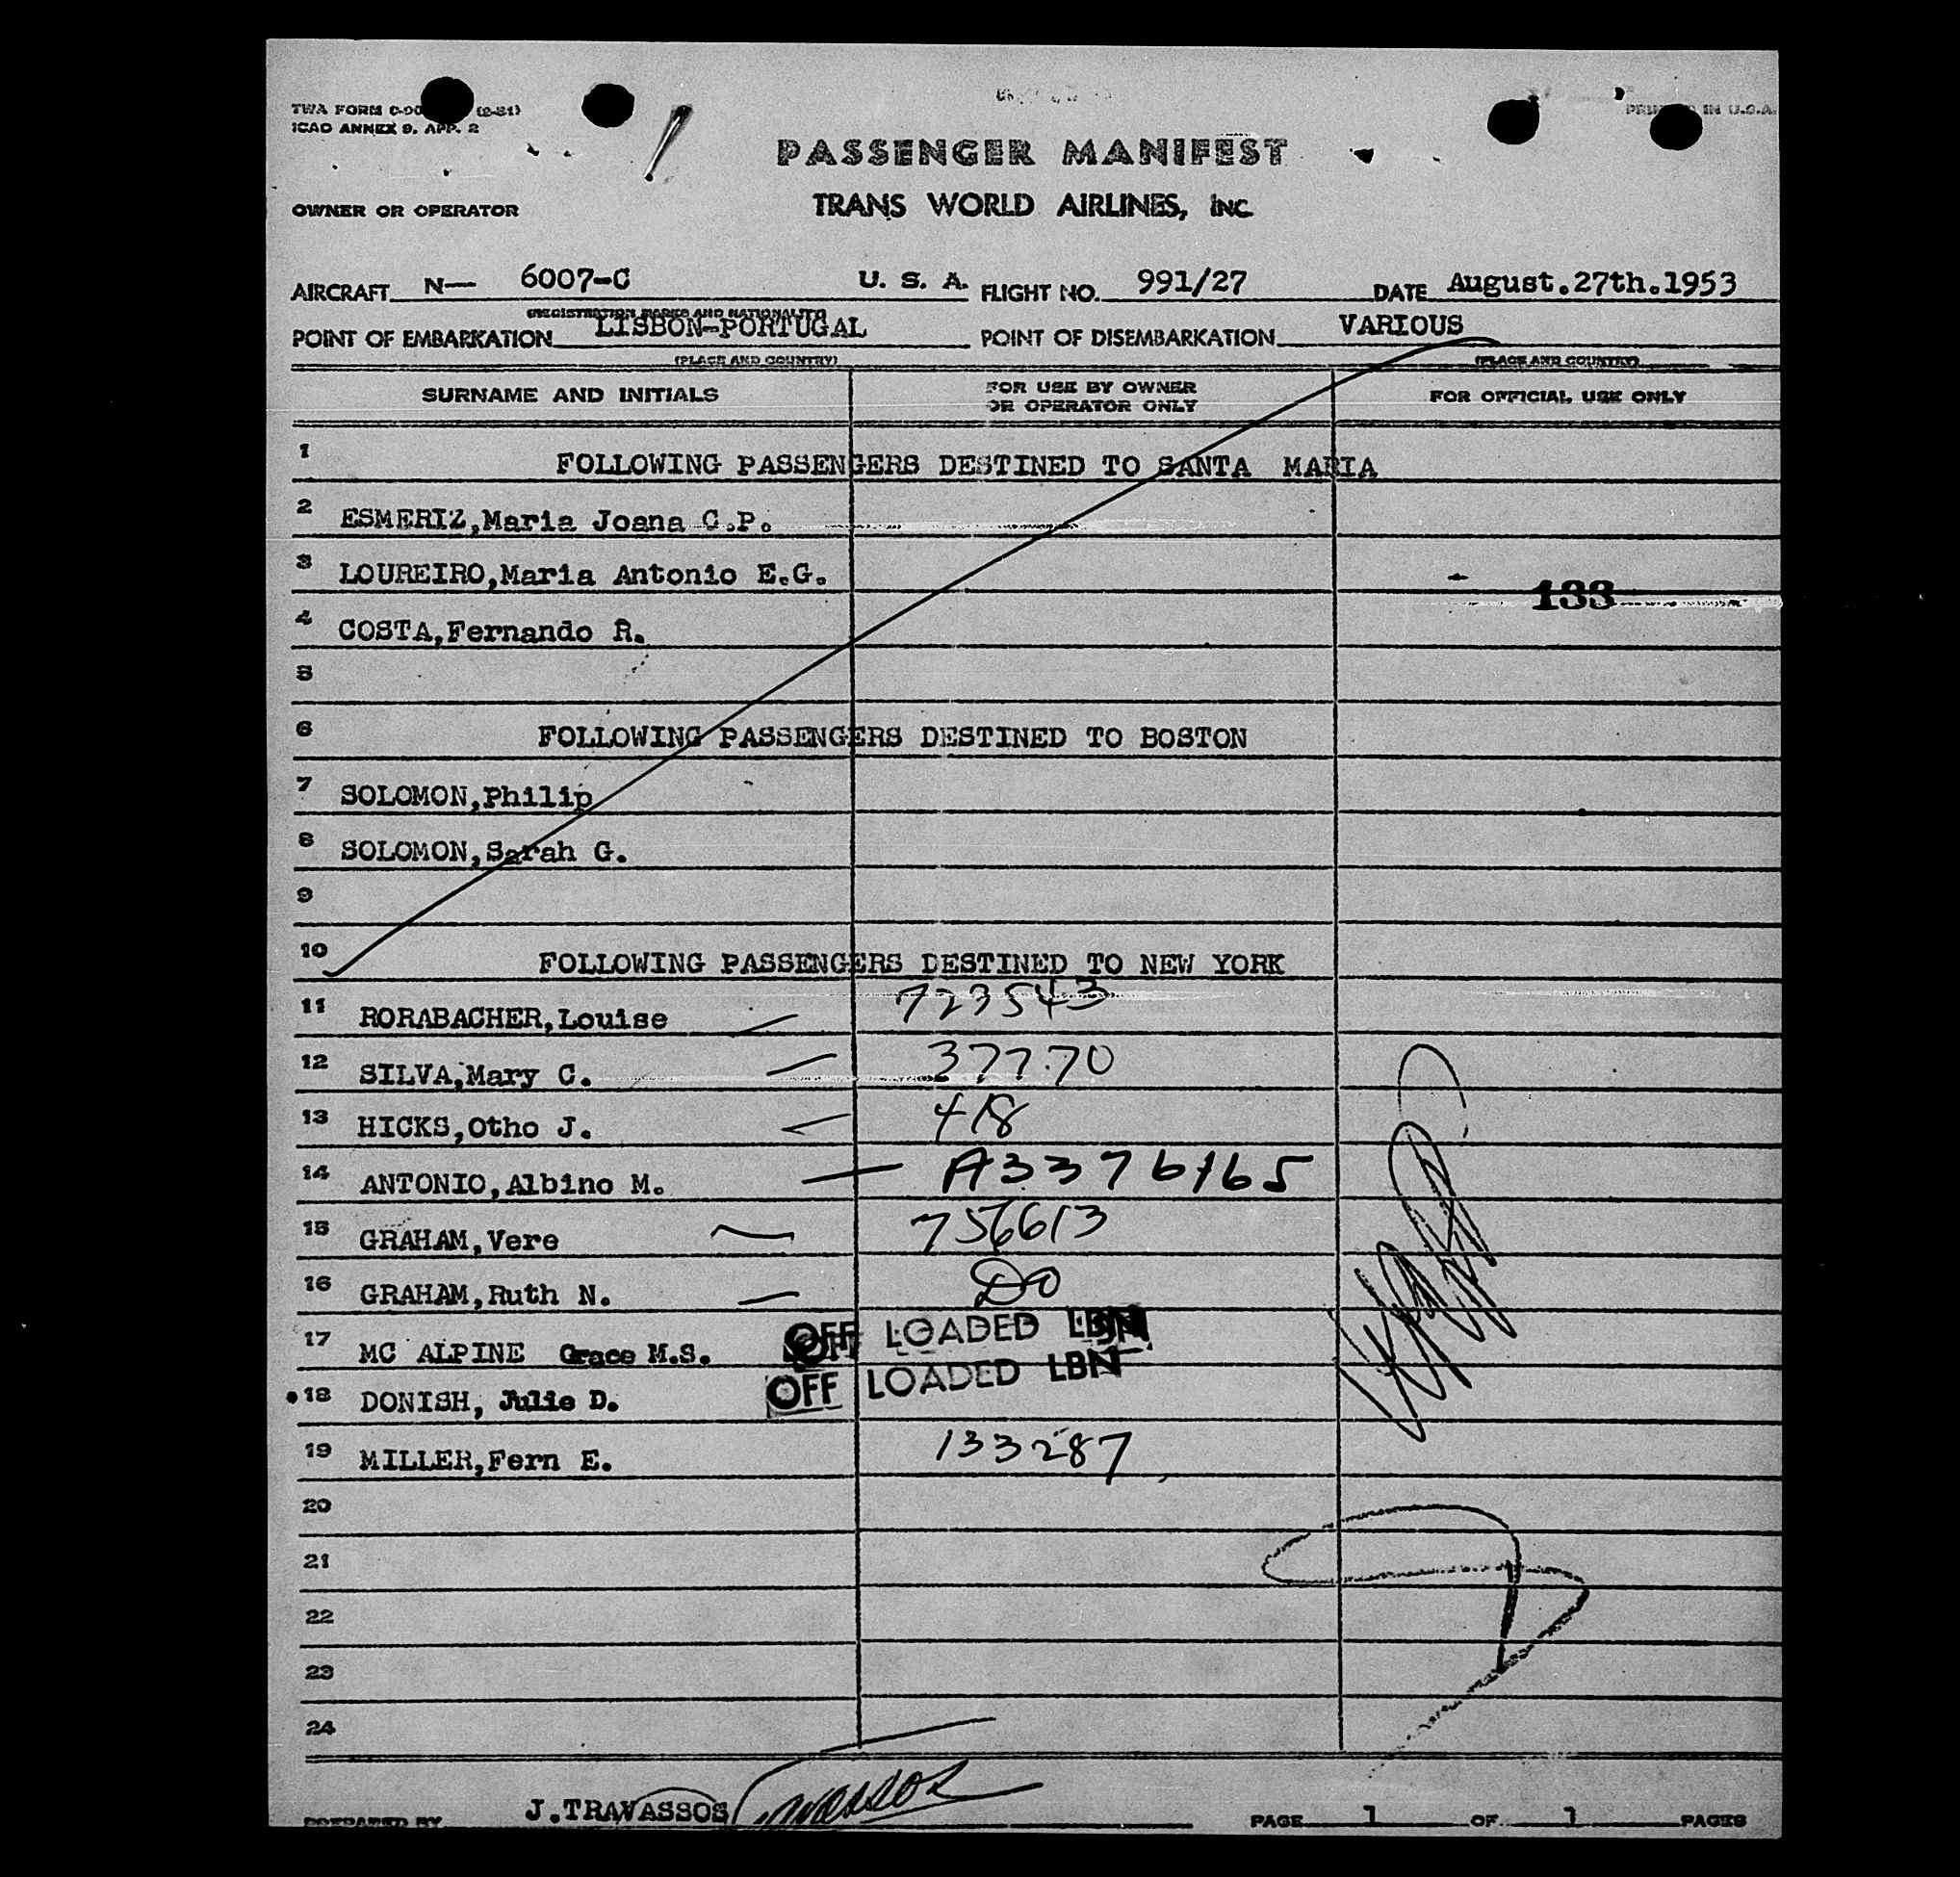 TWA FORM (2-51)
PRINTED IN U.S.A.
ICAO ANNEX 9, APP. 2
PASSENGER MANIFEST
OWNER OR OPERATOR
TRANS WORLD AIRLINES, INC
AIRCRAFT N— 6007-C U. S. A. FLIGHT NO. 991/27 DATE August.27th.1953
(REGISTRATION MARKS AND NATIONALITY)
POINT OF EMBARKATION LISBON-PORTUGAL POINT OF DISEMBARKATION VARIOUS
(PLACE AND COUNTRY) (PLACE AND COUNTRY)
SURNAME AND INITIALS FOR USE BY OWNER OR OPERATOR ONLY FOR OFFICIAL USE ONLY
1 FOLLOWING PASSENGERS DESTINED TO SANTA MARIA
2 ESMERIZ,Maria Joana C.P.
3 LOUREIRO,Maria Antonio E.G. 133
4 COSTA,Fernando R.
5
6 FOLLOWING PASSENGERS DESTINED TO BOSTON
7 SOLOMON,Philip
8 SOLOMON,Sarah G.
9
10 FOLLOWING PASSENGERS DESTINED TO NEW YORK
11 RORABACHER,Louise 723543
12 SILVA,Mary C. 37770
13 HICKS,Otho J. 418
14 ANTONIO,Albino M. A3376165
15 GRAHAM,Vere 756613
16 GRAHAM,Ruth N. Do
17 MC ALPINE Grace M.S. OFF LOADED LBN
18 DONISH, Julie D. OFF LOADED LBN
19 MILLER,Fern E. 133287
20
21
22
23
24
PREPARED BY J.TRAVASSOS Travassos PAGE 1 OF 1 PAGES